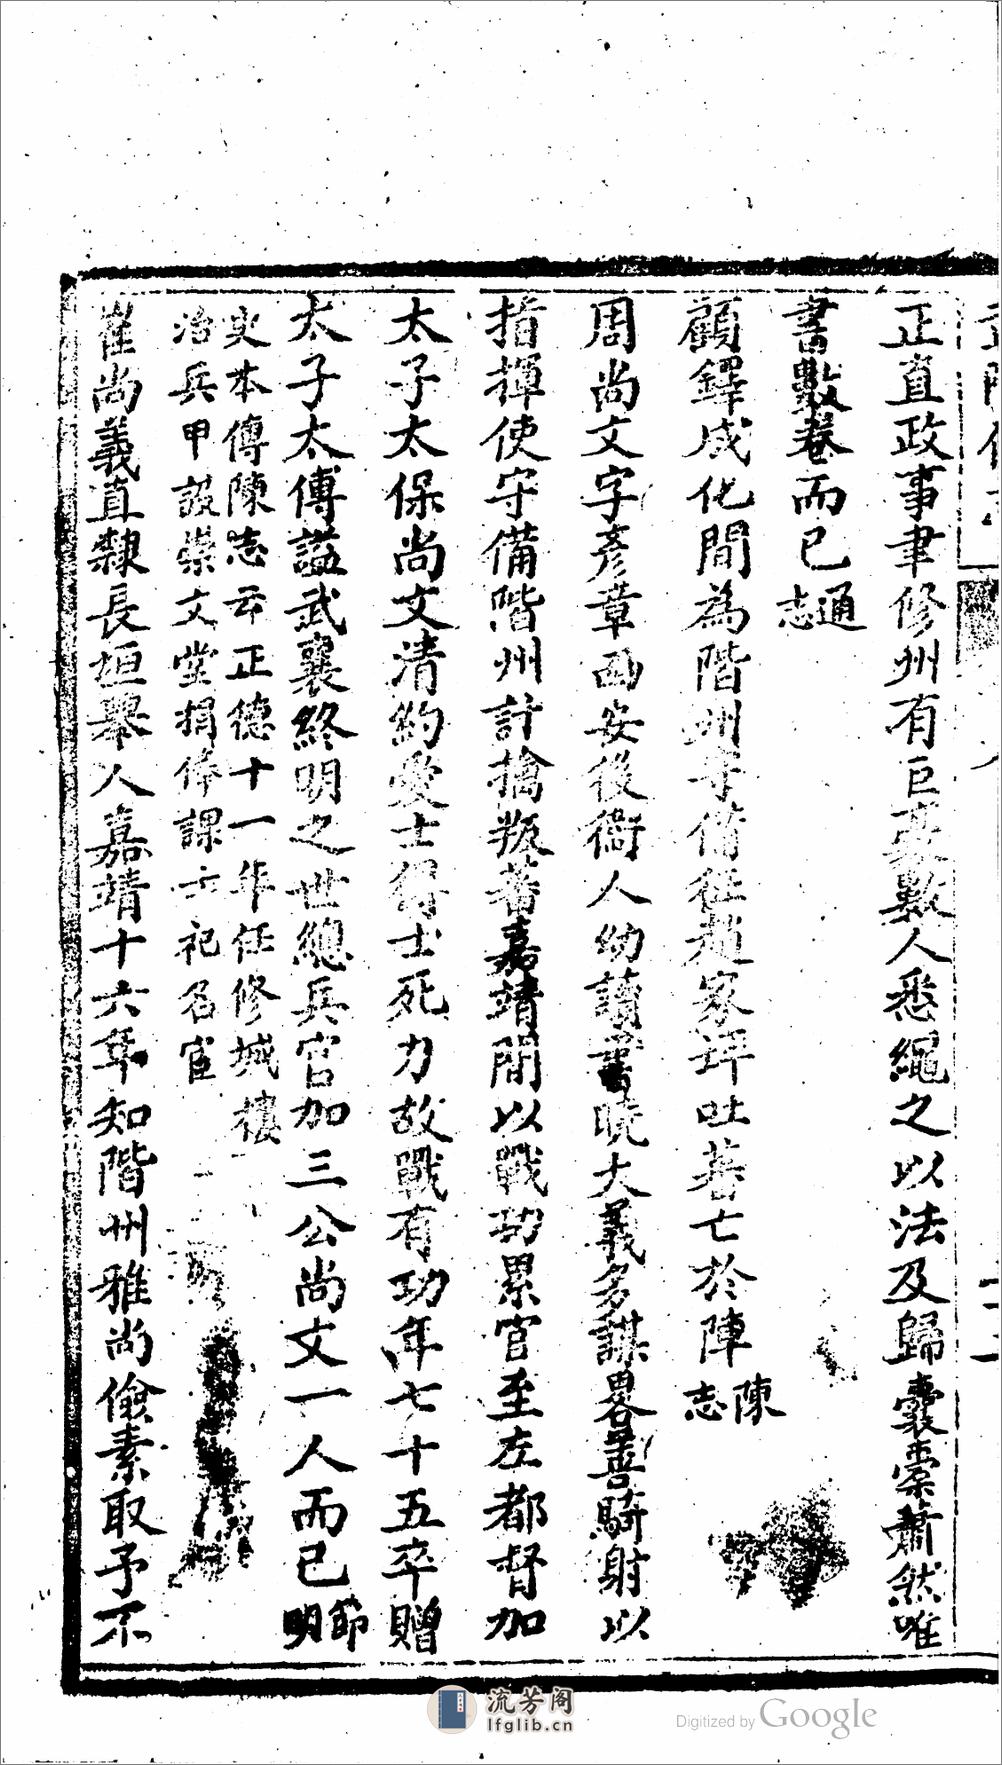 正直政事聿修州有巨惡數人悉繩之以法及歸囊橐蕭然唯
書數卷而已通志
顧鐸成化間為階州守備征趙家坪吐蕃亡於陣陳志
周尚文字彥章西安後衛人幼讀書曉大義多謀畧善騎射以
指揮使守備階州計擒叛蕃嘉靖間以戰功累官至左都督加
太子太保尚文清約愛士得士死力故戰有功年七十五卒贈
太子太傅諡武襄終明之世總兵官加三公尚文一人而已節明
史本傳陳志云正德十一年任修城樓
治兵甲設崇文堂捐俸課士祀名宦
崔尚義直隸長垣舉人嘉靖十六年知階州雅尚儉素取予不
流芳阁
lfglib.cn
Digitized by Google